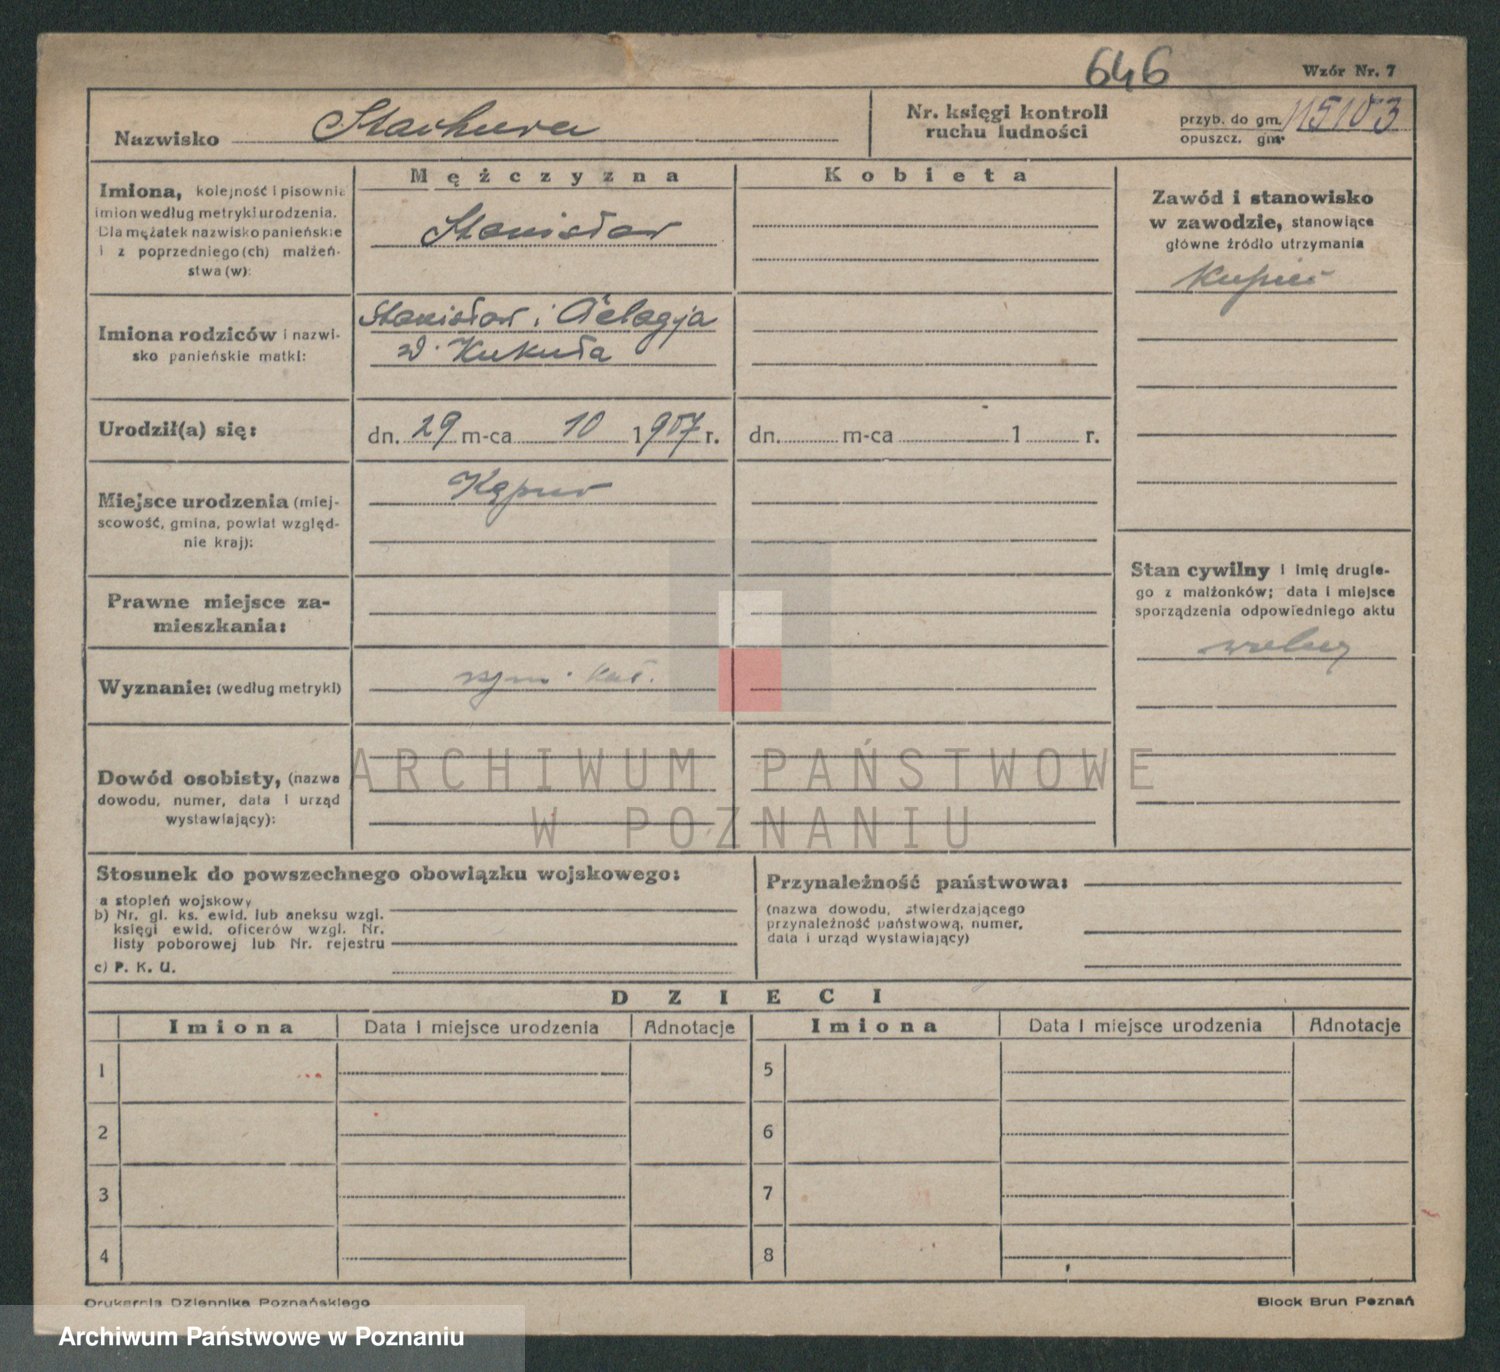 646
Wzór Nr. 7
Nazwisko Stachura
Nr. księgi kontroli
ruchu ludności
przyb. do gm.
opuszcz. gm.
Mężczyzna
Kobieta
Imiona, kolejność i pisownia
imion według metryki urodzenia.
Dla mężatek nazwisko panieńskie
i z poprzedniego(ch) małżeń-
stwa(w):
Stanisław
Zawód i stanowisko
w zawodzie, stanowiące
główne źródło utrzymania
Kupiec
Imiona rodziców i nazwi-
sko panieńskie matki:
Stanisław i Pelagja
d. Kukuła
Urodził(a) się:
dn. 29 m-ca 10 1907 r.
dn. m-ca 1 r.
Miejsce urodzenia (miej-
scowość, gmina, powiat względ-
nie kraj):
Stan cywilny i imię drugie-
go z małżonków; data i miejsce
sporządzenia odpowiedniego aktu
wolny
Prawne miejsce za-
mieszkania:
Wyznanie: (według metryki)
rzym. kat.
Dowód osobisty, (nazwa
dowodu, numer, data i urząd
wystawiający):
ARCHIWUM PAŃSTWOWE
W POZNANIU
Stosunek do powszechnego obowiązku wojskowego:
a stopień wojskowy
b) Nr. gl. ks. ewid. lub aneksu wzgl.
księgi ewid. oficerów wzgl. Nr.
listy poborowej lub Nr. rejestru
c) P. K. U.
Przynależność państwowa:
(nazwa dowodu, stwierdzającego
przynależność państwową, numer,
data i urząd wystawiający)
DZIECI
Imiona Data i miejsce urodzenia Adnotacje Imiona Data i miejsce urodzenia Adnotacje
1 5
2 6
3 7
4 8
Drukarnia Dziennika Poznańskiego
Block Brun Poznań
Archiwum Państwowe w Poznaniu